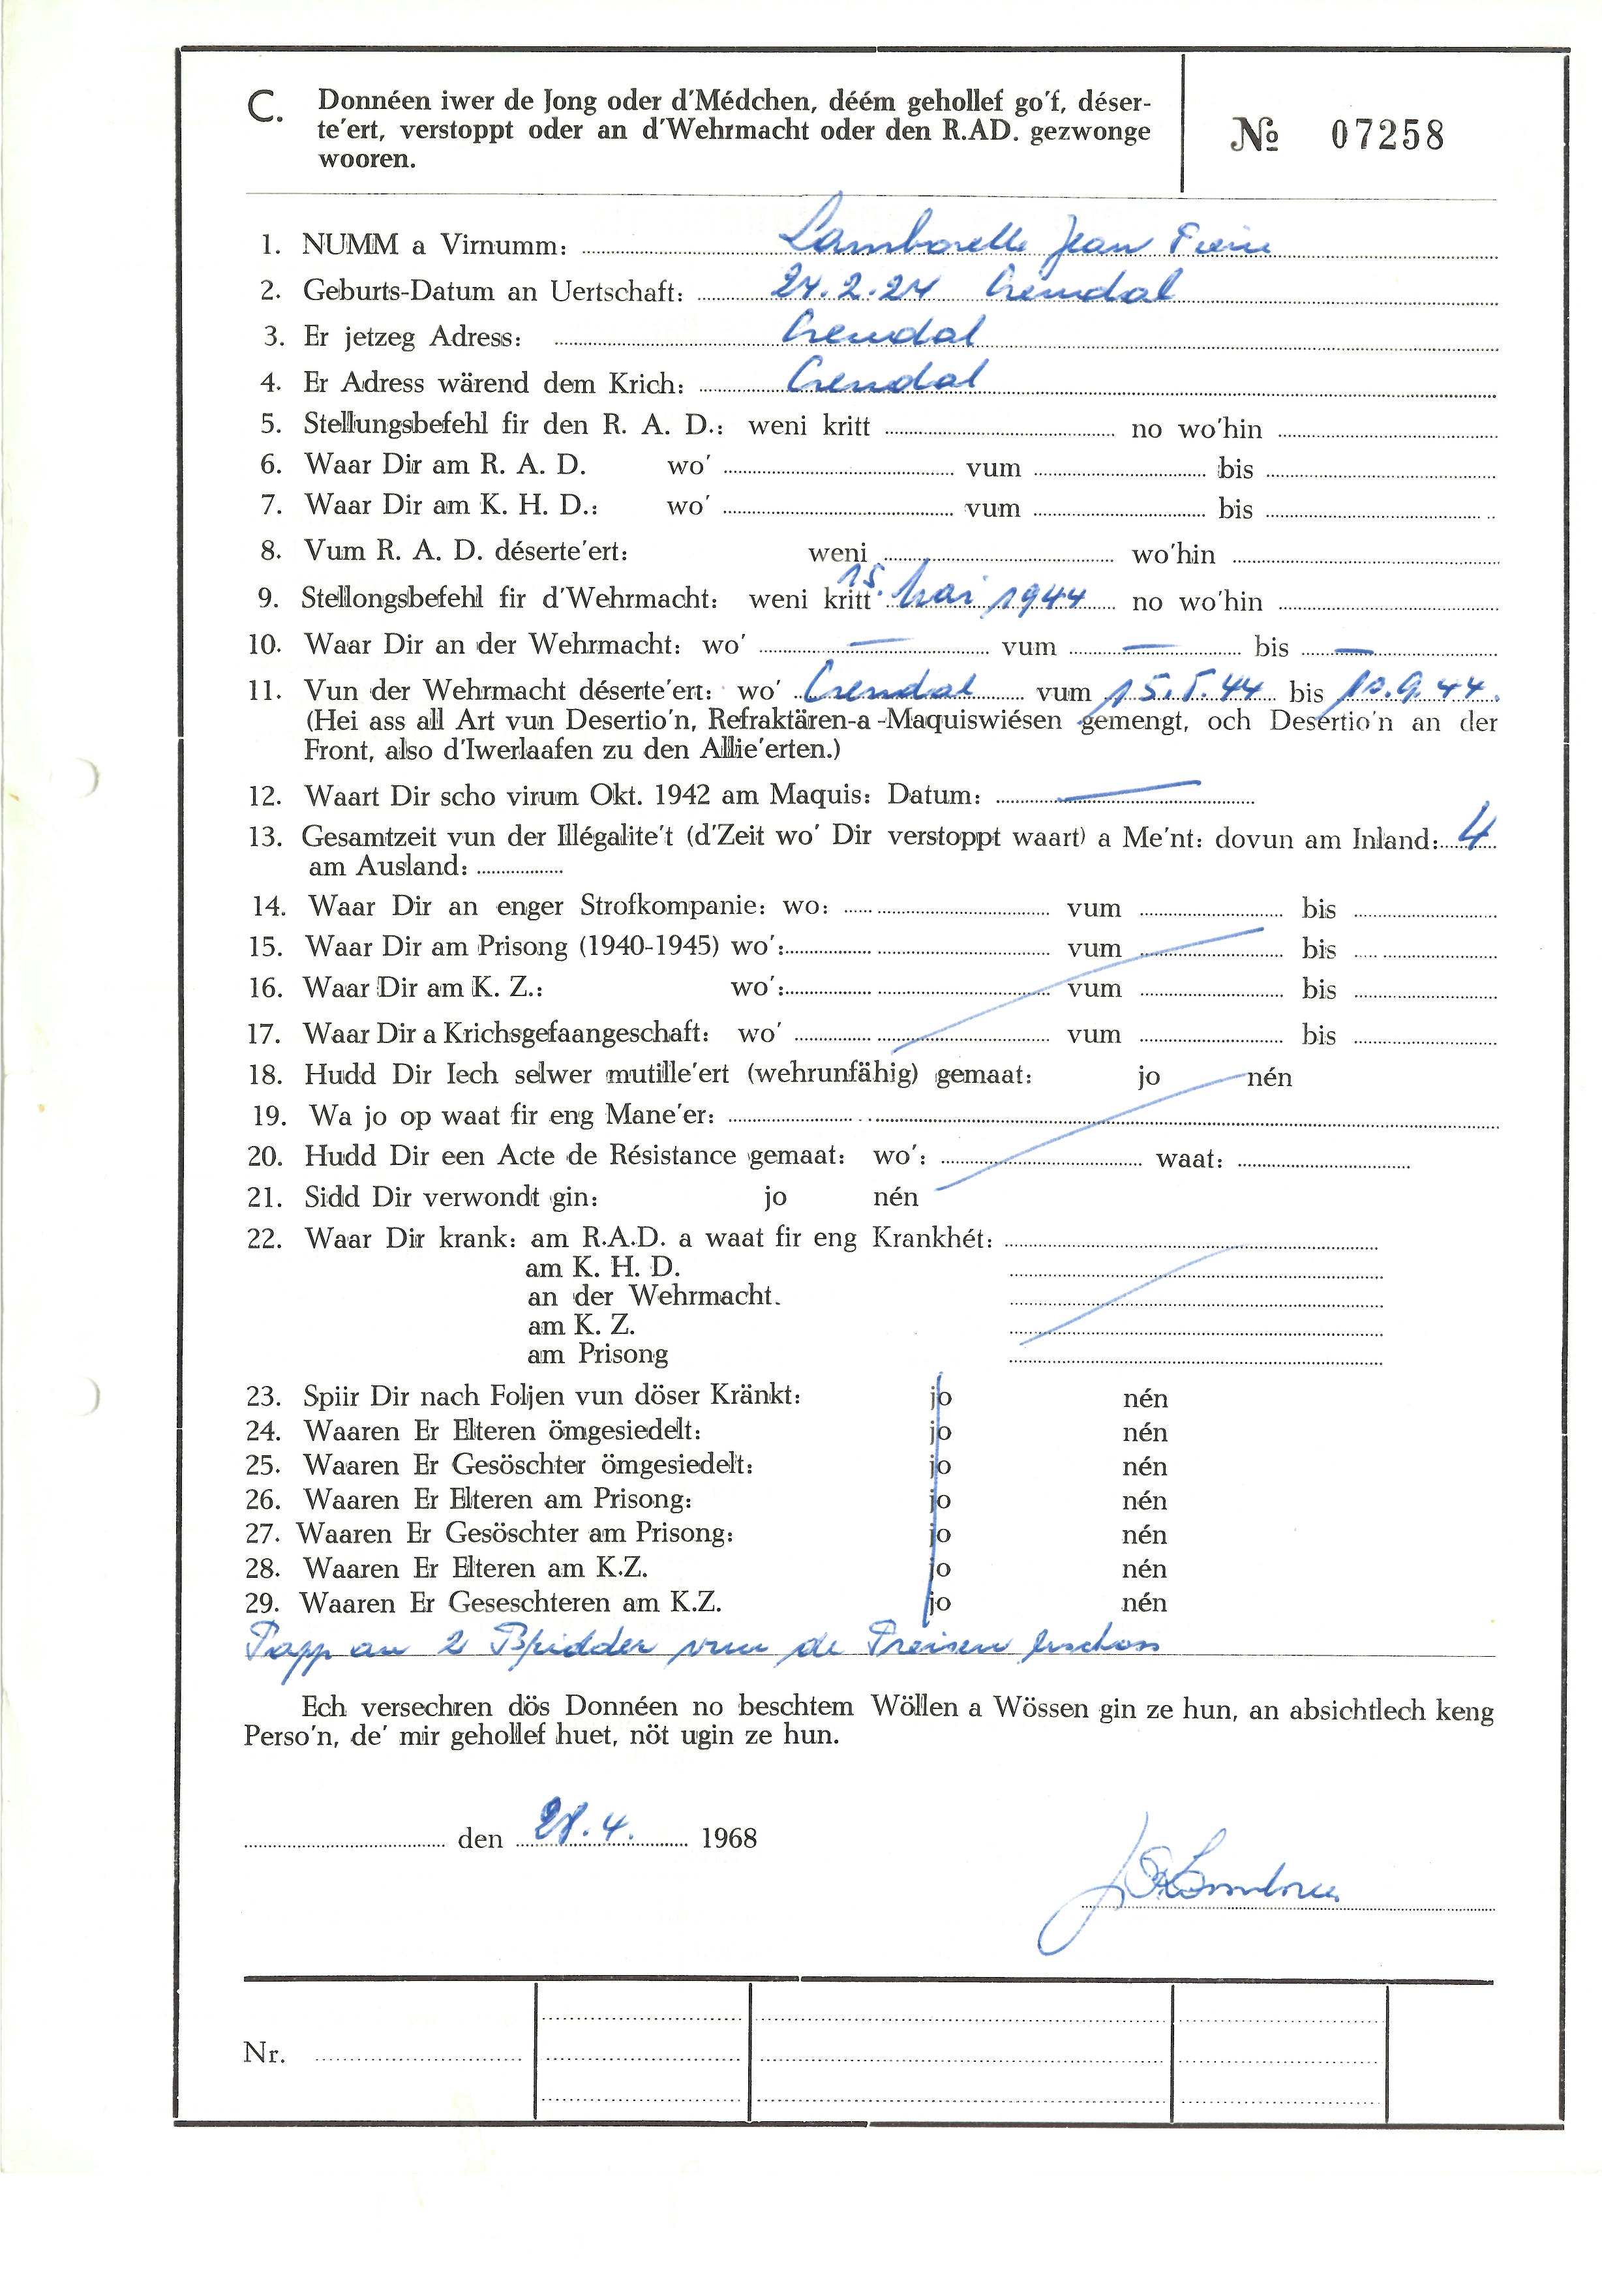 C. Donnéen iwer de Jong oder d'Médchen, déém gehollef go'f, déser-
te'ert, verstoppt oder an d'Wehrmacht oder den R.AD. gezwonge
wooren.
№ 07258
1. NUMM a Virnumm: Lamborelle Jean Pierre
2. Geburts-Datum an Uertschaft: 24.2.24 Crendal
3. Er jetzeg Adress: Crendal
4. Er Adress wärend dem Krich: Crendal
5. Stellungsbefehl fir den R. A. D.: weni kritt no wo'hin
6. Waar Dir am R. A. D. wo' vum bis
7. Waar Dir am K. H. D.: wo' vum bis
8. Vum R. A. D. déserte'ert: weni wo'hin
9. Stellongsbefehl fir d'Wehrmacht: weni kritt 15. Mai 1944 no wo'hin
10. Waar Dir an der Wehrmacht: wo' — vum — bis —
11. Vun der Wehrmacht déserte'ert: wo' Crendal vum 15.5.44 bis 10.9.44.
(Hei ass all Art vun Desertio'n, Refraktären-a-Maquiswiésen gemengt, och Desertio'n an der
Front, also d'Iwerlaafen zu den Allie'erten.)
12. Waart Dir scho virum Okt. 1942 am Maquis: Datum: —
13. Gesamtzeit vun der Illégalite't (d'Zeit wo' Dir verstoppt waart) a Me'nt: dovun am Inland: 4
am Ausland:
14. Waar Dir an enger Strofkompanie: wo: vum bis
15. Waar Dir am Prisong (1940-1945) wo': vum bis
16. Waar Dir am K. Z.: wo': vum bis
17. Waar Dir a Krichsgefaangeschaft: wo' vum bis
18. Hudd Dir Iech selwer mutille'ert (wehrunfähig) gemaat: jo nén
19. Wa jo op waat fir eng Mane'er:
20. Hudd Dir een Acte de Résistance gemaat: wo': waat:
21. Sidd Dir verwondt gin: jo nén
22. Waar Dir krank: am R.A.D. a waat fir eng Krankhét:
am K. H. D.
an der Wehrmacht.
am K. Z.
am Prisong
23. Spiir Dir nach Foljen vun döser Kränkt: jo nén
24. Waaren Er Elteren ömgesiedelt: jo nén
25. Waaren Er Gesöschter ömgesiedelt: jo nén
26. Waaren Er Elteren am Prisong: jo nén
27. Waaren Er Gesöschter am Prisong: jo nén
28. Waaren Er Elteren am K.Z. jo nén
29. Waaren Er Geseschteren am K.Z. jo nén
Papp an 2 Bridder vun de Preisen erschoss
Ech versechren dös Donnéen no beschtem Wöllen a Wössen gin ze hun, an absichtlech keng
Perso'n, de' mir gehollef huet, nöt ugin ze hun.
den 28.4. 1968
Nr.